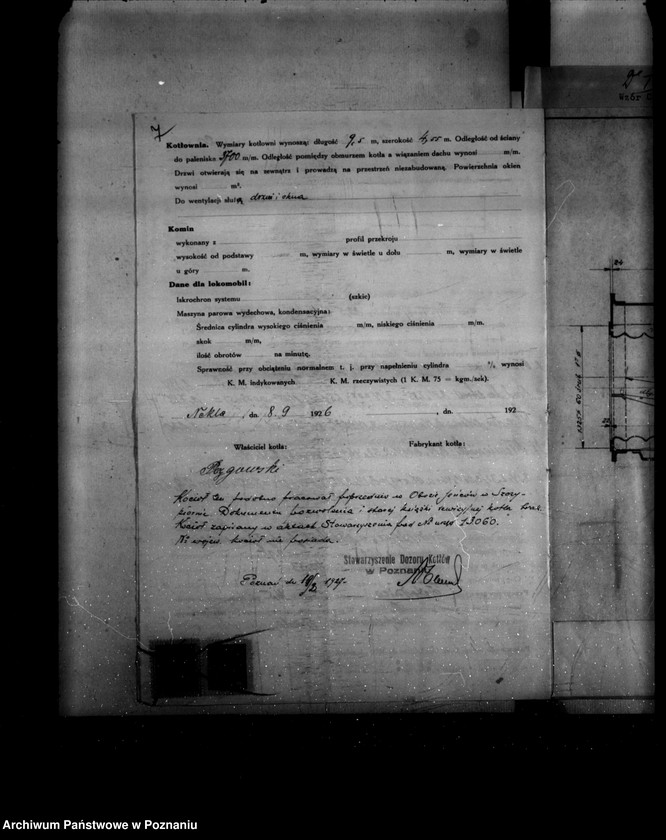 7
Kotłownia. Wymiary kotłowni wynoszą: długość 9,5 m, szerokość 4,05 m. Odległość od ściany
do paleniska 3700 m/m. Odległość pomiędzy obmurzem kotła a wiązaniem dachu wynosi m/m.
Drzwi otwierają się na zewnątrz i prowadzą na przestrzeń niezabudowaną. Powierzchnia okien
wynosi m².
Do wentylacji służą drzwi i okna
Komin
wykonany z profil przekroju
wysokość od podstawy m, wymiary w świetle u dołu m, wymiary w świetle
u góry m.
Dane dla lokomobil:
Iskrochron systemu (szkic)
Maszyna parowa wydechowa, kondensacyjna:
Średnica cylindra wysokiego ciśnienia m/m, niskiego ciśnienia m/m.
skok m/m,
ilość obrotów na minutę.
Sprawność przy obciążeniu normalnem t. j. przy napełnieniu cylindra % wynosi
K. M. indykowanych K. M. rzeczywistych (1 K. M. 75 — kgm./sek).
Nekla, dn. 8.9 1926 , dn. 192
Właściciel kotła: Fabrykant kotła:
Kocioł ten podobno pracował poprzednio w Obozie Jeńców w
Dokumentu zezwolenia i starej książki rewizyjnej kotła brak.
Kocioł zapisany w aktach Stowarzyszenia pod № 13060.
kocioł nie posiada.
Stowarzyszenie Dozoru Kotłów
w Poznaniu
Poznań dn
Wzór
Archiwum Państwowe w Poznaniu